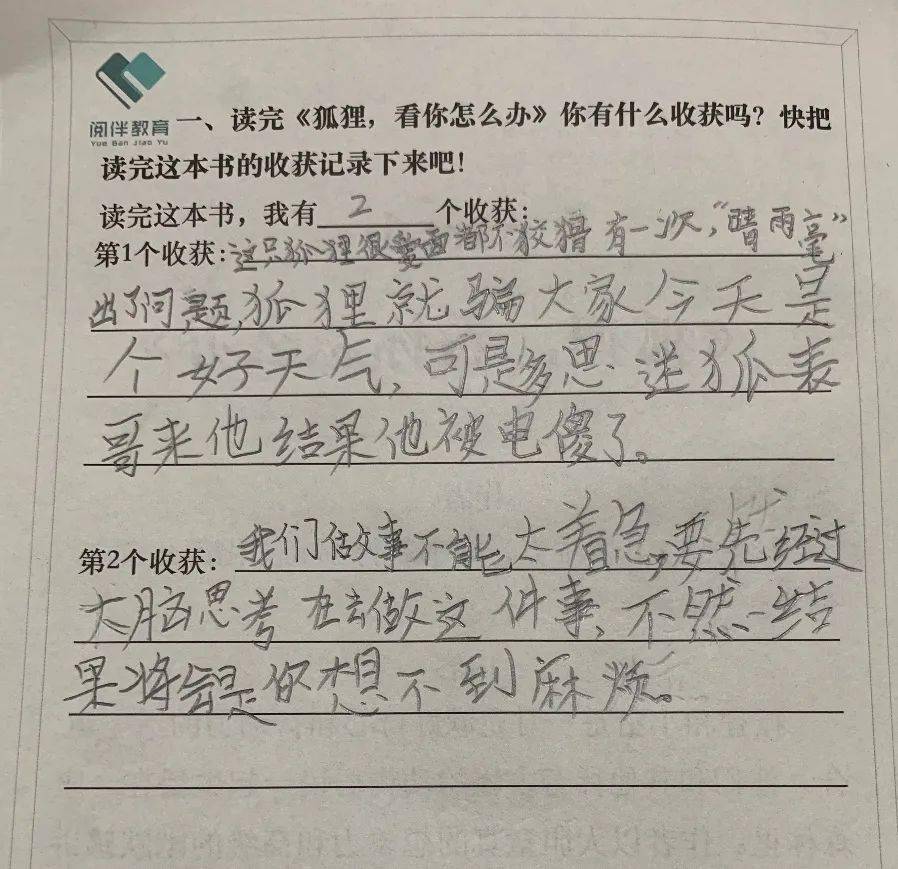 阅伴教育
Yue Ban Jiao Yu
一、读完《狐狸，看你怎么办》你有什么收获吗？快把
读完这本书的收获记录下来吧！
读完这本书，我有 2 个收获：
第1个收获：这只狐狸很爱面都不狡猾有一次，“晴雨毫”
出了问题，狐狸就骗大家今天是
个好天气，可是多思迷狐表
哥来他结果他被电傻了。
第2个收获：我们做事不能太着急，要先经过
大脑思考在去做这件事，不然结
果将会是你想不到麻烦。